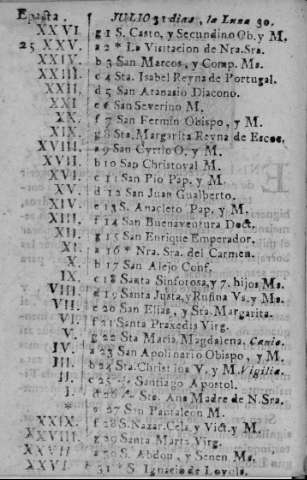 Epacta. JULIO 31 dias, la Luna 30.
XXVI. g 1 S. Casto, y Secundino Ob. y M.
25 XXV. a 2 * La Visitacion de Nra. Sra.
XXIV. b 3 San Marcos, y Comp. Ms.
XXIII. c 4 Sta. Isabel Reyna de Portugal.
XXII. d 5 San Atanasio Diacono.
XXI e 6 San Severino M.
XX. f 7 San Fermin Obispo, y M.
XIX. g 8 Sta. Margarita Reyna de Escoc.
XVIII. a 9 San Cyrilo O. y M.
XVII. b 10 San Christoval M.
XVI. c 11 San Pio Pap. y M.
XV. d 12 San Juan Gualberto.
XIV. e 13 S. Anacleto Pap. y M.
XIII. f 14 San Buenaventura Doct.
XII. g 15 San Enrique Emperador.
XI. a 16 * Nra. Sra. del Carmen.
X. b 17 San Alejo Conf.
IX. c 18 Santa Sinforosa, y 7. hijos Ms.
VIII. d 19 Santa Justa, y Rufina Vs. y Ms.
VII. e 20 San Elias, y Sta. Margarita.
VI. f 21 Santa Praxedis Virg.
V. g 22 Sta Maria Magdalena.
IV. a 23 San Apolinario Obispo, y M.
III. b 24 Sta. Christina V. y M. Vigilia.
II. c 25 Santiago Apostol.
I. d 26 Sta. Ana Madre de N. Sra.
* e 27 Sn Pantaleon M.
XXIX. f 28 S. Nazar. Cels. y Vict. y M.
XXVIII. g 29 Santa Marta Virg.
XXVII. a 30 S. Abdon, y Senen Ms.
XXVI b 31 * S. Ignacio de Loyola.